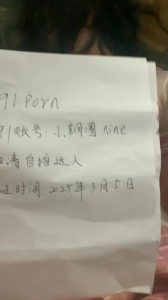 91 Porn
91账号:小铜圈 nine
自拍达人
证时间 2025年3月5日